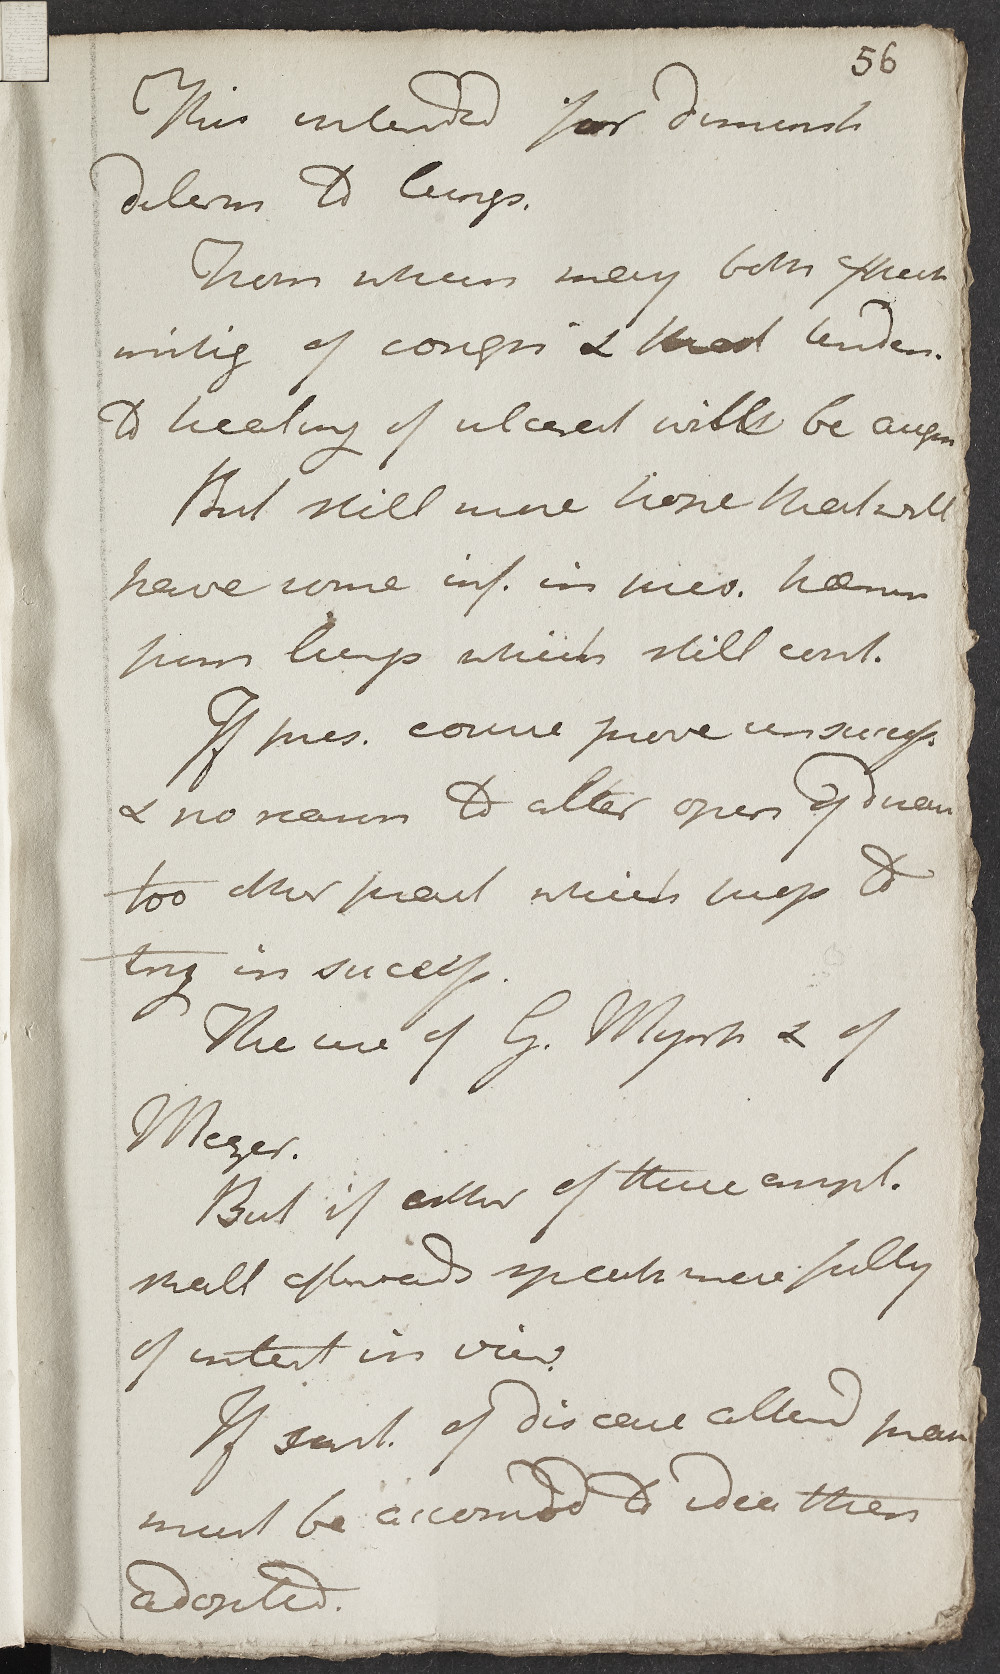 56
This intended for diminish
determ to lungs.
From whence may both expect
mitig of cough & that tenden.
to healing of ulcerat will be augm
But still more hope that will
have some inf. in prev. hæmor
from lungs which still cont.
If pres. course prove unsuccess.
& no reason to alter opin of disease
too other pract which prop to
try in success.
The use of G. Myrrh & of
Mezer.
But if either of these empl.
shall afterwards speak more fully
of intent in view.
If sent. of disease alter'd pract
must be accomod to idea then
adopted.